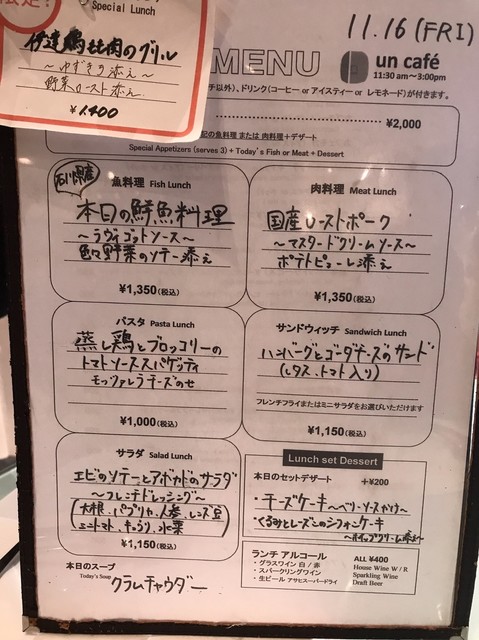 Special Lunch
伊達鶏モモ肉のグリル
〜ゆずきの添え〜
野菜ロースト添え
¥1,400
11.16 (FRI)
MENU
un café
11:30 am〜3:00pm
以外)、ドリンク(コーヒー or アイスティー or レモネード)が付きます。
¥2,000
記の魚料理 または 肉料理+デザート
Special Appetizers (serves 3)+Today's Fish or Meat+Dessert
石川県産
魚料理 Fish Lunch
本日の鮮魚料理
〜ラヴィゴットソース〜
色々野菜のソテー添え
¥1,350(税込)
肉料理 Meat Lunch
国産ローストポーク
〜マスタードクリームソース〜
ポテトピューレ添え
¥1,350(税込)
パスタ Pasta Lunch
蒸し鶏とブロッコリーの
トマトソーススパゲッティ
モッツァレラチーズのせ
¥1,000(税込)
サンドウィッチ Sandwich Lunch
ハンバーグとゴーダチーズのサンド
(レタス、トマト入り)
フレンチフライまたはミニサラダをお選びいただけます
¥1,150(税込)
サラダ Salad Lunch
エビのソテーとアボカドのサラダ
〜フレンチドレッシング〜
(大根、パプリカ、人参、レンズ豆
ミニトマト、キュウリ、水菜)
¥1,150(税込)
Lunch set Dessert
本日のセットデザート +¥200
・チーズケーキ〜ベリーソースかけ〜
・くるみとレーズンのシフォンケーキ
〜ホイップクリーム添え〜
本日のスープ
Today's Soup
クラムチャウダー
ランチ アルコール ALL ¥400
・グラスワイン 白 / 赤 House Wine W / R
・スパークリングワイン Sparkling Wine
・生ビール アサヒスーパードライ Draft Beer